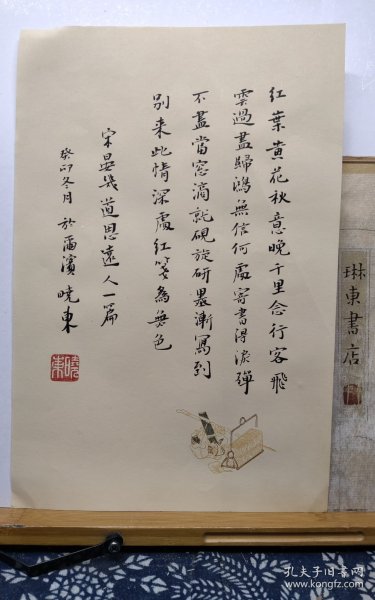 红葉黄花秋意晚千里念行客飛
雲過盡歸鴻無信何處寄書得淚彈
不盡當窓滴就硯旋研墨漸寫到
别来此情深處红箋為無色
宋晏幾道思遠人一篇
癸卯冬月於雨濱曉東
曉東
琳東書店
孔夫子旧书网
www.kongfz.com